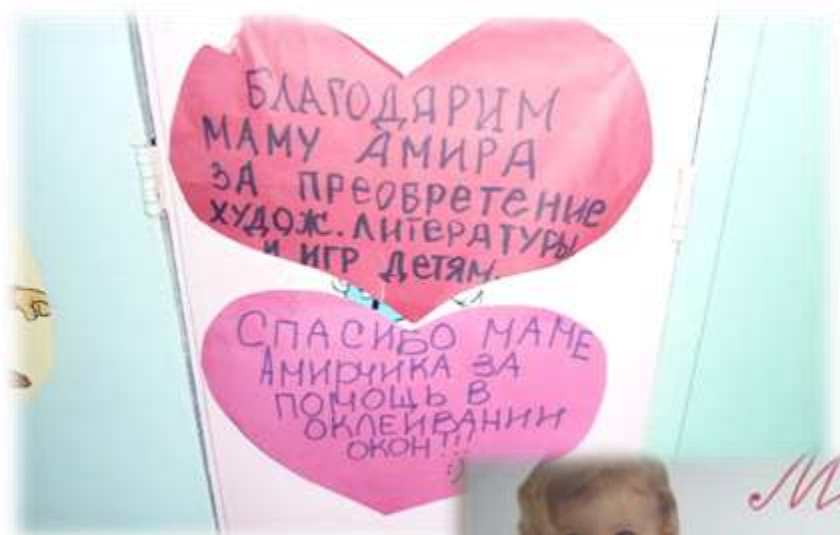 БЛАГОДАРИМ
МАМУ АМИРА
ЗА ПРЕОБРЕТЕНИЕ
ХУДОЖ. ЛИТЕРАТУРЫ
И ИГР ДЕТЯМ.
СПАСИБО МАМЕ
АМИРЧИКА ЗА
ПОМОЩЬ В
ОКЛЕИВАНИИ
ОКОН!!!
:)